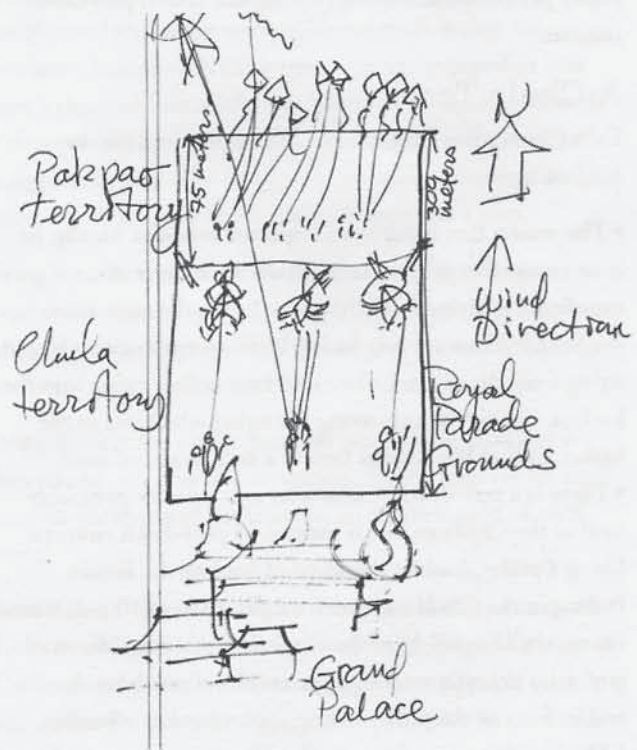 N
Pakpao
territory
75 meters
300
meters
Wind
Direction
Chula
territory
Royal
Parade
Grounds
Grand
Palace